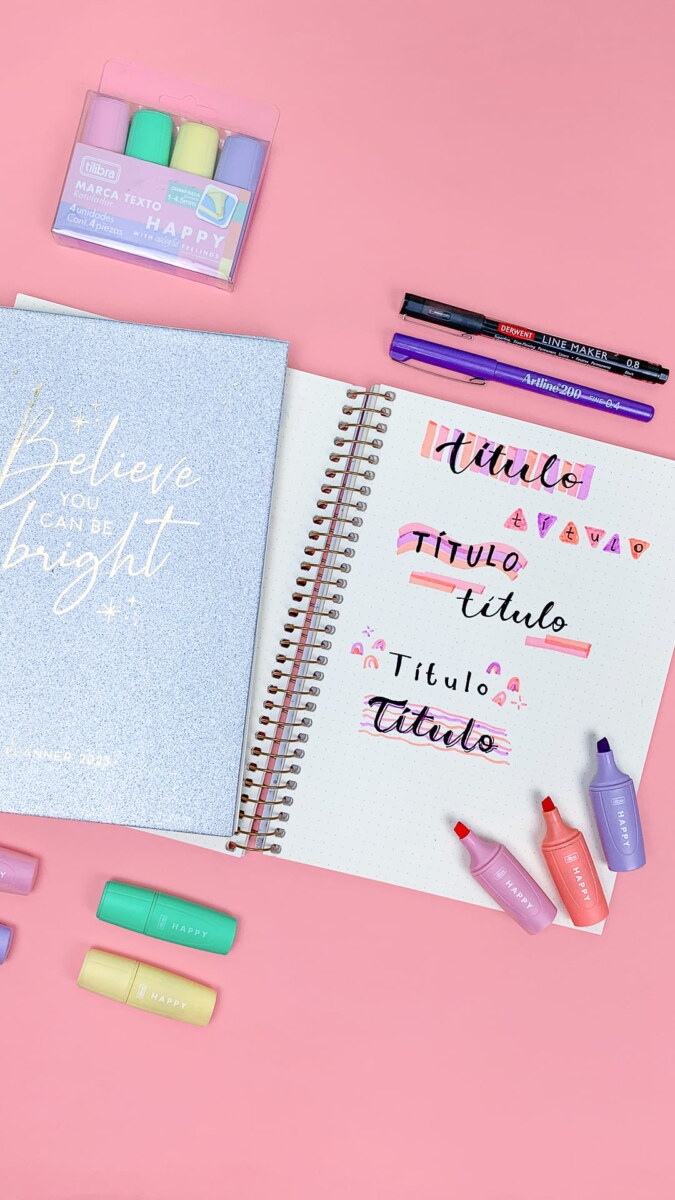 tilibra
MARCA TEXTO
4 unidades
Cont. 4 piezas
1-4.5mm
HAPPY
WITH FEELINGS
DERWENT LINE MAKER 0.8
Artline 200 FINE 0.4
Believe
YOU
CAN BE
bright
PLANNER 2023
título
título
TÍTULO
título
Título
Título
HAPPY
HAPPY
HAPPY
HAPPY
HAPPY